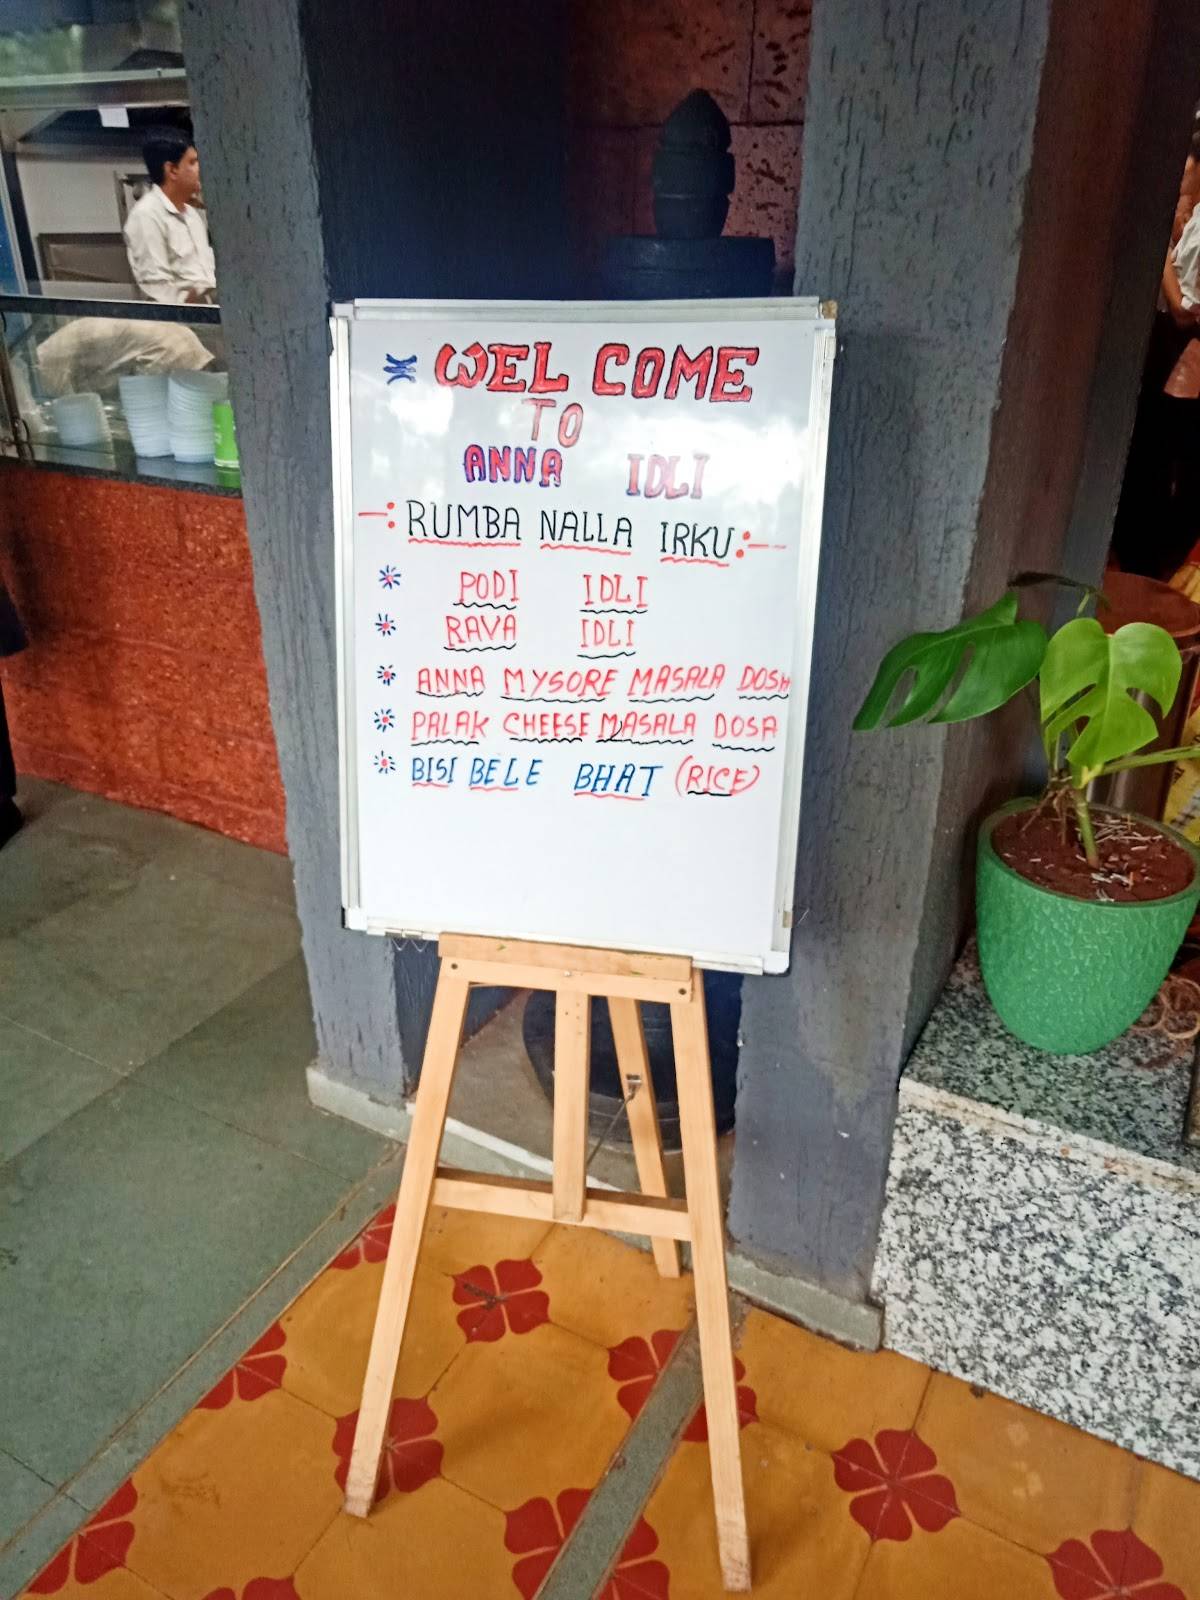 WELCOME
TO
ANNA IDLI
RUMBA NALLA IRKU
PODI IDLI
RAVA IDLI
ANNA MYSORE MASALA DOSA
PALAK CHEESE MASALA DOSA
BISI BELE BHAT (RICE)